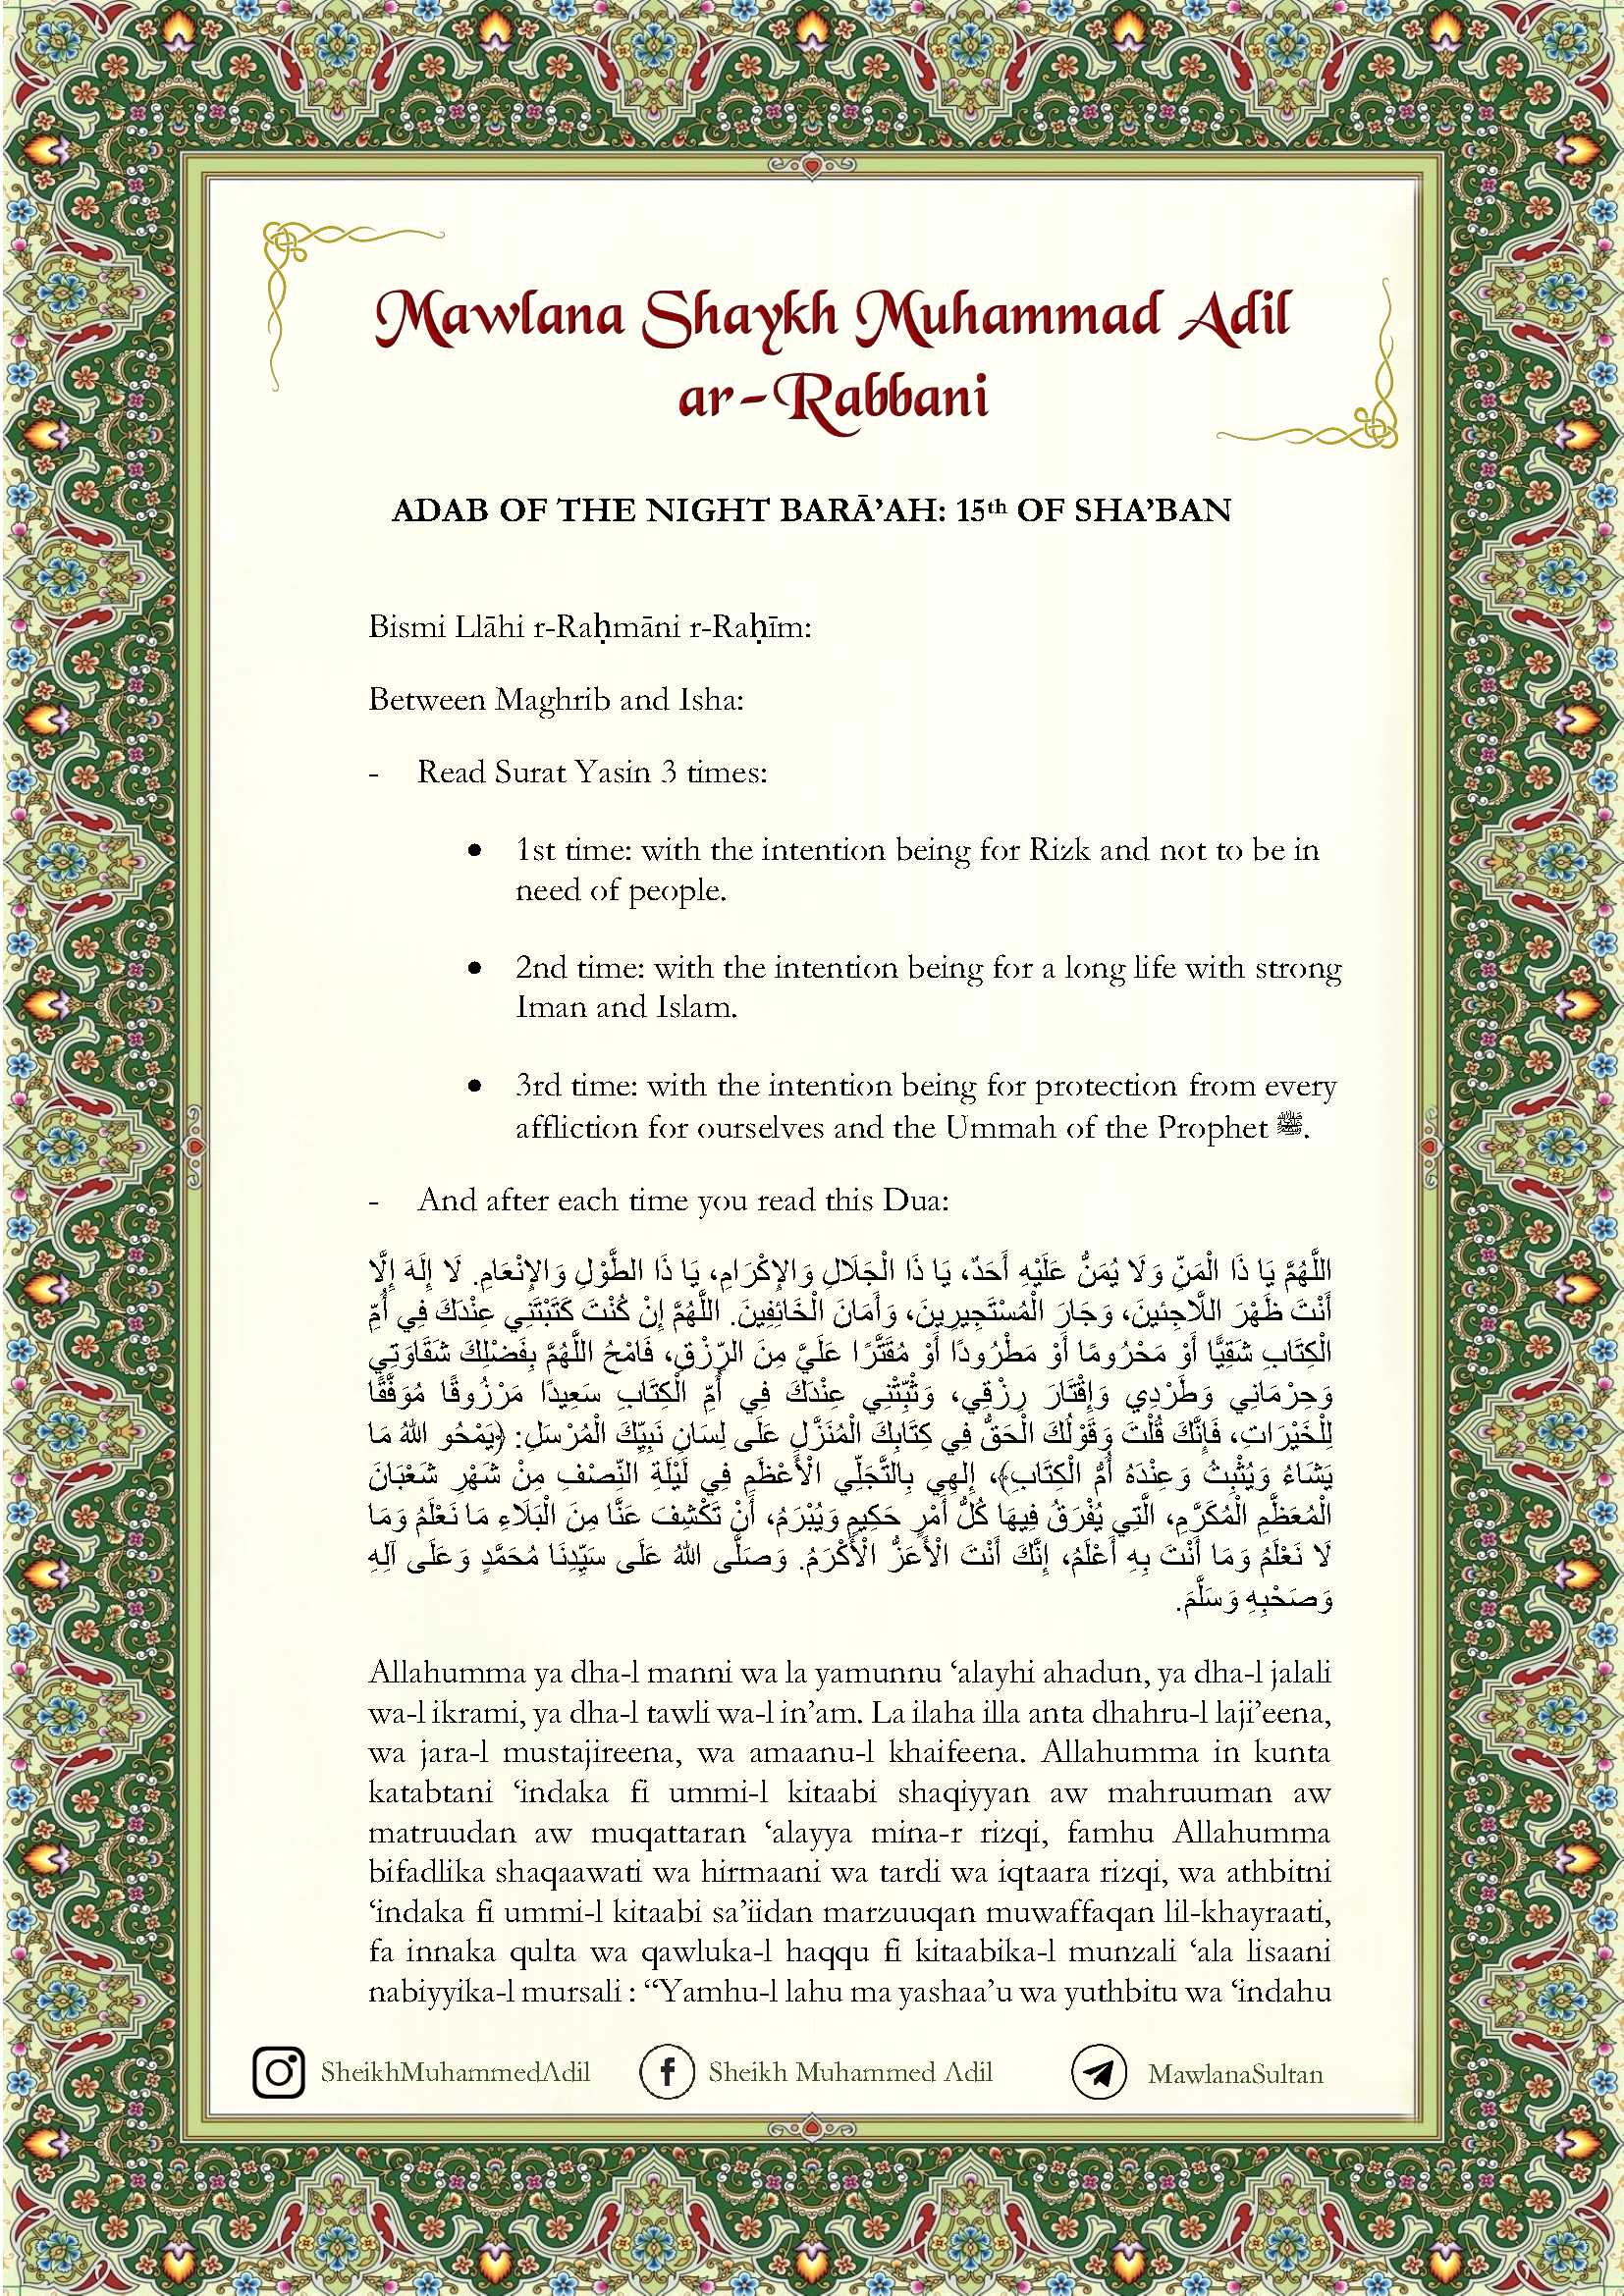 Mawlana Shaykh Muhammad Adil
ar-Rabbani
ADAB OF THE NIGHT BARĀ’AH: 15th OF SHA’BAN
Bismi Llāhi r-Raḥmāni r-Raḥīm:
Between Maghrib and Isha:
- Read Surat Yasin 3 times:
• 1st time: with the intention being for Rizk and not to be in
need of people.
• 2nd time: with the intention being for a long life with strong
Iman and Islam.
• 3rd time: with the intention being for protection from every
affliction for ourselves and the Ummah of the Prophet ﷺ.
- And after each time you read this Dua:
اللَّهُمَّ يَا ذَا الْمَنِّ وَلَا يُمَنُّ عَلَيْهِ أَحَدٌ، يَا ذَا الْجَلَالِ وَالإِكْرَامِ، يَا ذَا الطَّوْلِ وَالإِنْعَامِ. لَا إِلَهَ إِلَّا
أَنْتَ ظَهْرَ اللَّاجِئينَ، وَجَارَ الْمُسْتَجِيرِينَ، وَأَمَانَ الْخَائِفِينَ. اللَّهُمَّ إِنْ كُنْتَ كَتَبْتَنِي عِنْدَكَ فِي أُمِّ
الْكِتَابِ شَقِيًّا أَوْ مَحْرُومًا أَوْ مَطْرُودًا أَوْ مُقَتَّرًا عَلَيَّ مِنَ الرِّزْقِ، فَامْحُ اللَّهُمَّ بِفَضْلِكَ شَقَاوَتِي
وَحِرْمَانِي وَطَرْدِي وَإِقْتَارَ رِزْقِي، وَثَبِّتْنِي عِنْدَكَ فِي أُمِّ الْكِتَابِ سَعِيدًا مَرْزُوقًا مُوَفَّقًا
لِلْخَيْرَاتِ، فَإِنَّكَ قُلْتَ وَقَوْلُكَ الْحَقُّ فِي كِتَابِكَ الْمُنَزَّلِ عَلَى لِسَانِ نَبِيِّكَ الْمُرْسَلِ: ﴿يَمْحُو اللهُ مَا
يَشَاءُ وَيُثْبِتُ وَعِنْدَهُ أُمُّ الْكِتَابِ﴾، إِلهِي بِالتَّجَلِّي الْأَعْظَمِ فِي لَيْلَةِ النِّصْفِ مِنْ شَهْرِ شَعْبَانَ
الْمُعَظَّمِ الْمُكَرَّمِ، الَّتِي يُفْرَقُ فِيهَا كُلُّ أَمْرٍ حَكِيمٍ وَيُبْرَمُ، أَنْ تَكْشِفَ عَنَّا مِنَ الْبَلَاءِ مَا نَعْلَمُ وَمَا
لَا نَعْلَمُ وَمَا أَنْتَ بِهِ أَعْلَمُ، إِنَّكَ أَنْتَ الْأَعَزُّ الْأَكْرَمُ. وَصَلَّى اللهُ عَلَى سَيِّدِنَا مُحَمَّدٍ وَعَلَى آلِهِ
وَصَحْبِهِ وَسَلَّمَ.
Allahumma ya dha-l manni wa la yamunnu ‘alayhi ahadun, ya dha-l jalali
wa-l ikrami, ya dha-l tawli wa-l in’am. La ilaha illa anta dhahru-l laji’eena,
wa jara-l mustajireena, wa amaanu-l khaifeena. Allahumma in kunta
katabtani ‘indaka fi ummi-l kitaabi shaqiyyan aw mahruuman aw
matruudan aw muqattaran ‘alayya mina-r rizqi, famhu Allahumma
bifadlika shaqaawati wa hirmaani wa tardi wa iqtaara rizqi, wa athbitni
‘indaka fi ummi-l kitaabi sa’iidan marzuuqan muwaffaqan lil-khayraati,
fa innaka qulta wa qawluka-l haqqu fi kitaabika-l munzali ‘ala lisaani
nabiyyika-l mursali : “Yamhu-l lahu ma yashaa’u wa yuthbitu wa ‘indahu
SheikhMuhammedAdil Sheikh Muhammed Adil MawlanaSultan